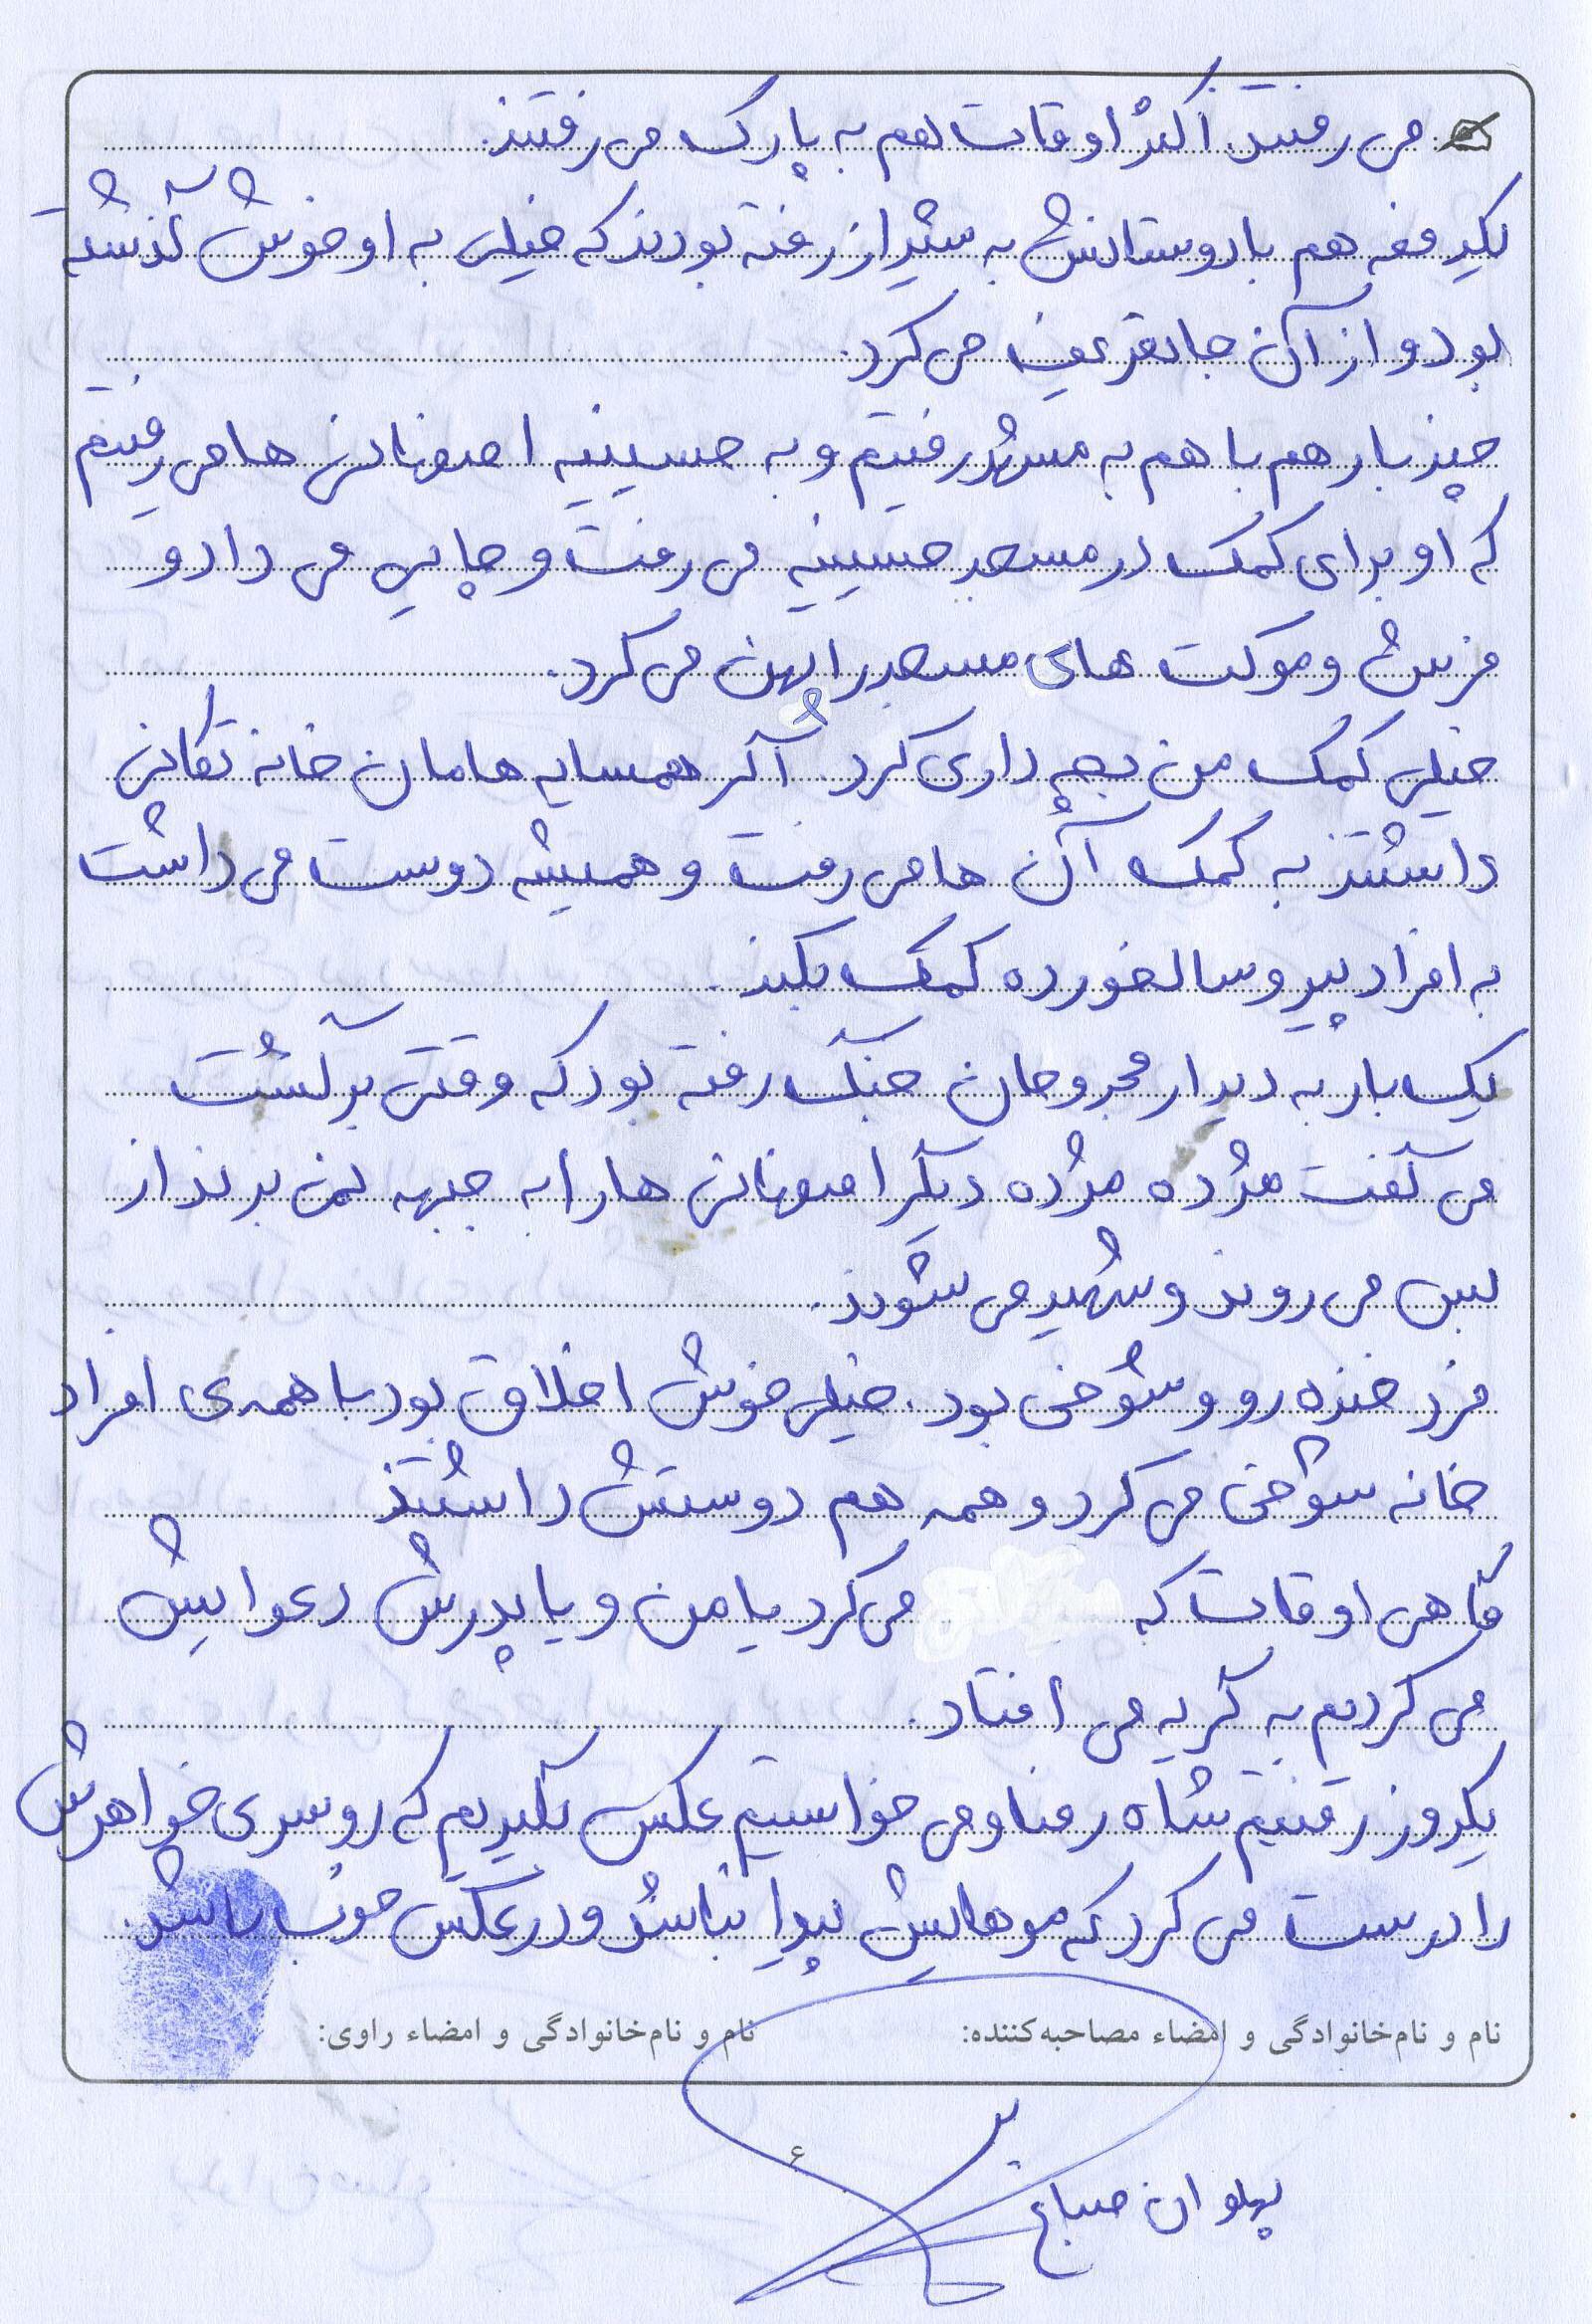 می رفتند. اکثر اوقات هم به پارک می رفتند.
یکدفعه هم با دوستانش به شیراز رفته بودند که خیلی به او خوش گذشته
بود و از آن جا تعریف می کرد.
چند بار هم با هم به مشهد رفتیم و به حسینیه اصفهانی ها می رفتیم
که او برای کمک در مسجد حسینیه می رفت و چایی می داد و
فرش و موکت های مسجد را پهن می کرد.
خیلی کمک من بچه داری کرد. اگر همسایه هامان خانه تکانی
داشتند به کمک آن ها می رفت و همیشه دوست می داشت
به افراد پیر و سالخورده کمک بکند.
یک بار به دیدار مجروحان جنگ رفته بود که وقتی برگشت
می گفت مژده مژده دیگر اصفهانی ها را به جبهه نمی برند از
بس می روند و شهید می شوند.
فرد خنده رو و شوخی بود. خیلی خوش اخلاق بود با همه ی افراد
خانه شوخی می کرد و همه هم دوستش داشتند
گاهی اوقات که می کرد یا من و یا پدرش دعوایش
می کردیم به گریه می افتاد.
یکروز رفتیم شاه رضا و می خواستیم عکس بگیریم که روسری خواهرش
را درست می کرد که موهایش پیدا نباشد و در عکس خوب باشد.
نام و نام‌خانوادگی و امضاء مصاحبه‌کننده: نام و نام‌خانوادگی و امضاء راوی:
۶
پهلوان صباغ